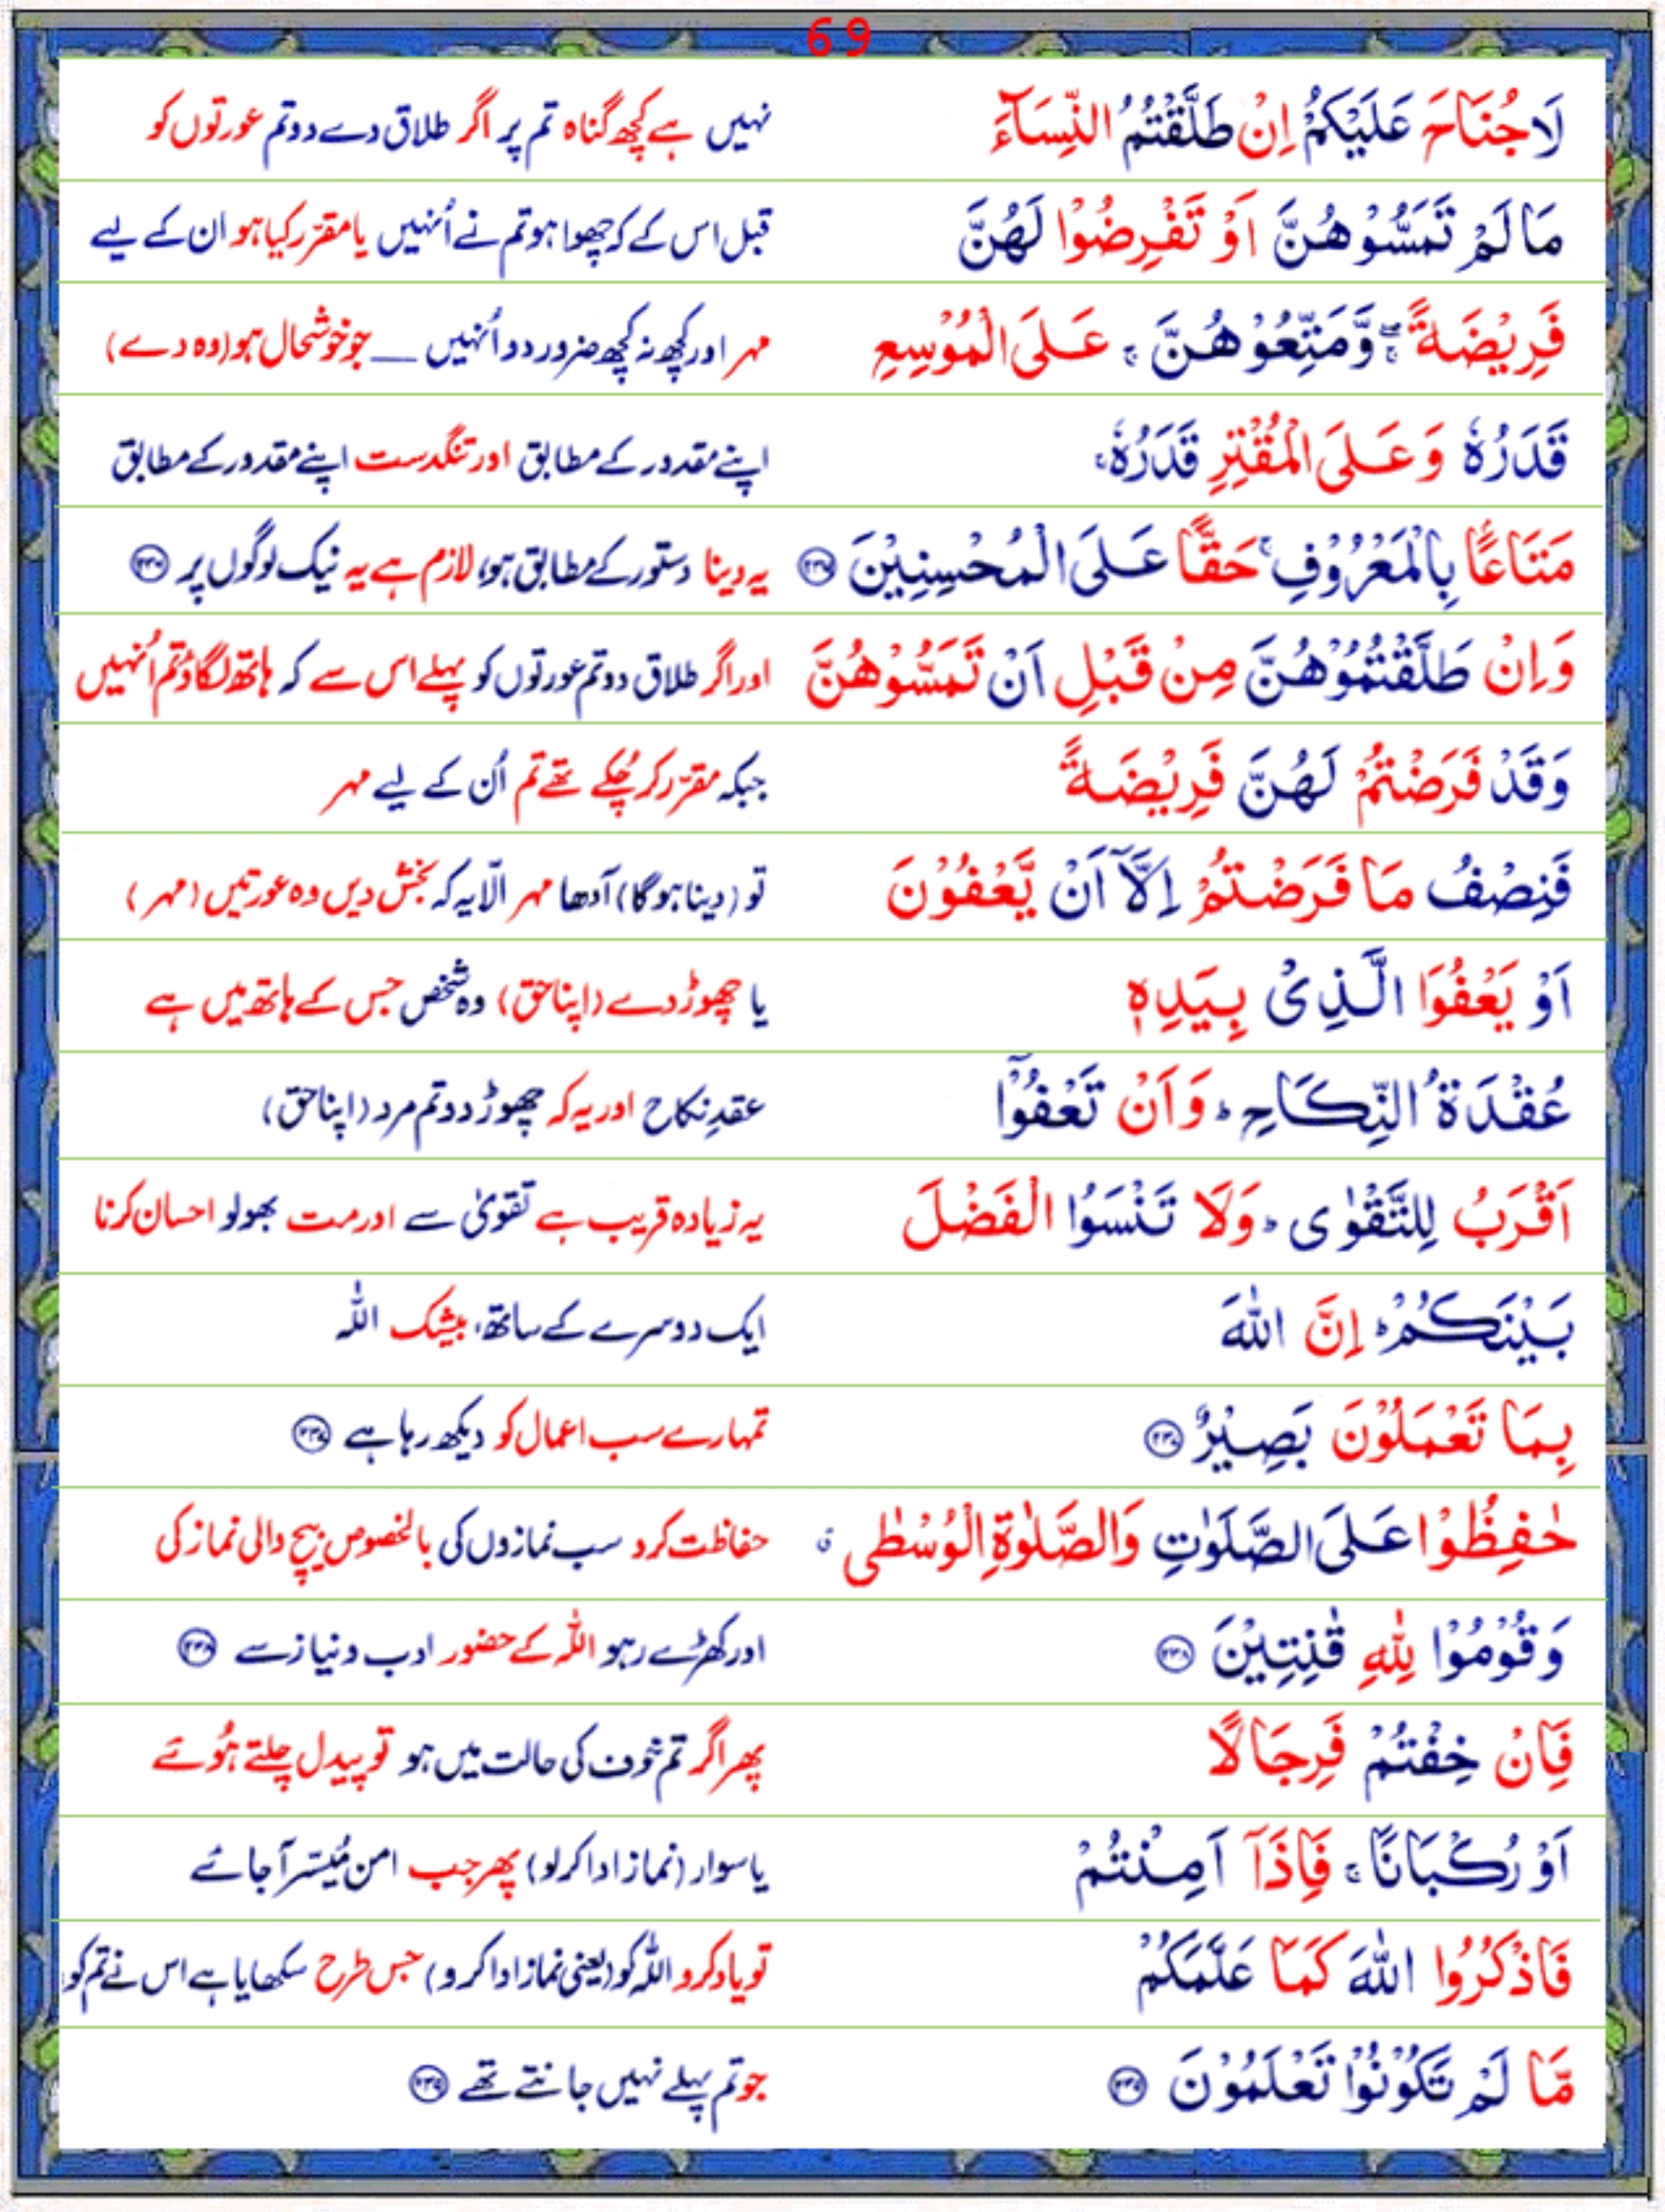 69
لَا جُنَاحَ عَلَيْكُمْ اِنْ طَلَّقْتُمُ النِّسَآءَ نہیں ہے کچھ گناہ تم پر اگر طلاق دے دو تم عورتوں کو
مَا لَمْ تَمَسُّوْهُنَّ اَوْ تَفْرِضُوْا لَهُنَّ قبل اس کے کہ چھوا ہو تم نے اُنہیں یا مقرّر کیا ہو ان کے لیے
فَرِيْضَةً ۖۚ وَّمَتِّعُوْهُنَّ ۚ عَلَى الْمُوْسِعِ مہر اور کچھ نہ کچھ ضرور دو اُنہیں ــــ جو خوشحال ہو (وہ دے)
قَدَرُهٗ وَعَلَى الْمُقْتِرِ قَدَرُهٗ ۚ اپنے مقدور کے مطابق اور تنگدست اپنے مقدور کے مطابق
مَتَاعًۢا بِالْمَعْرُوْفِ ۚ حَقًّا عَلَى الْمُحْسِنِيْنَ ۝۲۳۶ یہ دینا دستور کے مطابق ہو، لازم ہے یہ نیک لوگوں پر ۝۲۳۶
وَاِنْ طَلَّقْتُمُوْهُنَّ مِنْ قَبْلِ اَنْ تَمَسُّوْهُنَّ اور اگر طلاق دو تم عورتوں کو پہلے اس سے کہ ہاتھ لگاؤ تم اُنہیں
وَقَدْ فَرَضْتُمْ لَهُنَّ فَرِيْضَةً جبکہ مقرّر کر چُکے تھے تم اُن کے لیے مہر
فَنِصْفُ مَا فَرَضْتُمْ اِلَّآ اَنْ يَّعْفُوْنَ تو (دینا ہو گا) آدھا مہر الّا یہ کہ بخش دیں وہ عورتیں (مہر)
اَوْ يَعْفُوَا الَّذِىْ بِيَدِهٖ یا چھوڑ دے (اپنا حق) وہ شخص جس کے ہاتھ میں ہے
عُقْدَةُ النِّكَاحِ ؕ وَاَنْ تَعْفُوْٓا عقدِ نکاح اور یہ کہ چھوڑ دو تم مرد (اپنا حق)
اَقْرَبُ لِلتَّقْوٰى ؕ وَلَا تَنْسَوُا الْفَضْلَ یہ زیادہ قریب ہے تقویٰ سے اور مت بھولو احسان کرنا
بَيْنَكُمْ ؕ اِنَّ اللّٰهَ ایک دوسرے کے ساتھ، بیشک اللّٰہ
بِمَا تَعْمَلُوْنَ بَصِيْرٌ ۝۲۳۷ تمہارے سب اعمال کو دیکھ رہا ہے ۝۲۳۷
حٰفِظُوْا عَلَى الصَّلَوٰتِ وَالصَّلٰوةِ الْوُسْطٰى ۗ حفاظت کرو سب نمازوں کی بالخصوص بیچ والی نماز کی
وَقُوْمُوْا لِلّٰهِ قٰنِتِيْنَ ۝۲۳۸ اور کھڑے رہو اللّٰہ کے حضور ادب و نیاز سے ۝۲۳۸
فَاِنْ خِفْتُمْ فَرِجَالًا پھر اگر تم خوف کی حالت میں ہو تو پیدل چلتے ہُوئے
اَوْ رُكْبَانًا ۚ فَاِذَآ اَمِنْتُمْ یا سوار (نماز ادا کر لو) پھر جب امن مُیسّر آجائے
فَاذْكُرُوا اللّٰهَ كَمَا عَلَّمَكُمْ تو یاد کرو اللّٰہ کو (یعنی نماز ادا کرو) جس طرح سکھایا ہے اس نے تم کو،
مَّا لَمْ تَكُوْنُوْا تَعْلَمُوْنَ ۝۲۳۹ جو تم پہلے نہیں جانتے تھے ۝۲۳۹